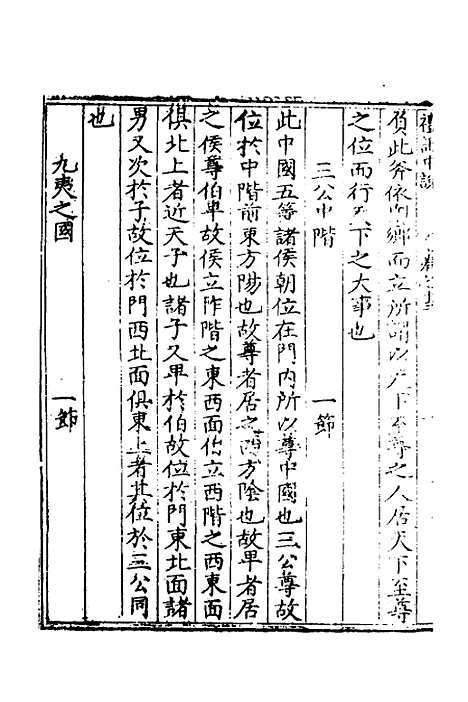 禮記中說
負此斧依南鄉而立所謂以天下至尊之人居天下至尊
之位而行天下之大事也
三公中階 一節
此中國五等諸侯朝位在門內所以尊中國也三公尊故
位於中階前東方陽也故尊者居之西方陰也故卑者居
之侯尊伯卑故侯立阼階之東西面伯立西階之西東面
俱北上者近天子也諸子又卑於伯故位於門東北面諸
男又次於子故位於門西北面俱東上者其位於三公同
也
九夷之國 一節